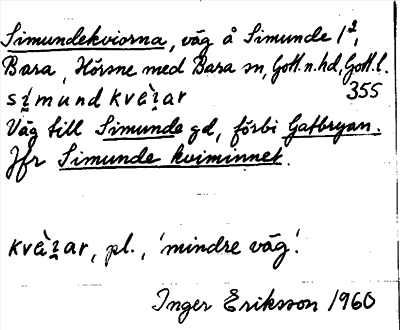 Simundekviorna, väg å Simunde 1²,
Bara, Hörsne med Bara sn, Gotl. n. hd, Gotl. l.
simund kvèi̯ar 355
Väg till Simunde gd, förbi Gatbryan.
Jfr Simunde kviminnet.
kvèi̯ar, pl., 'mindre väg'.
Inger Eriksson 1960